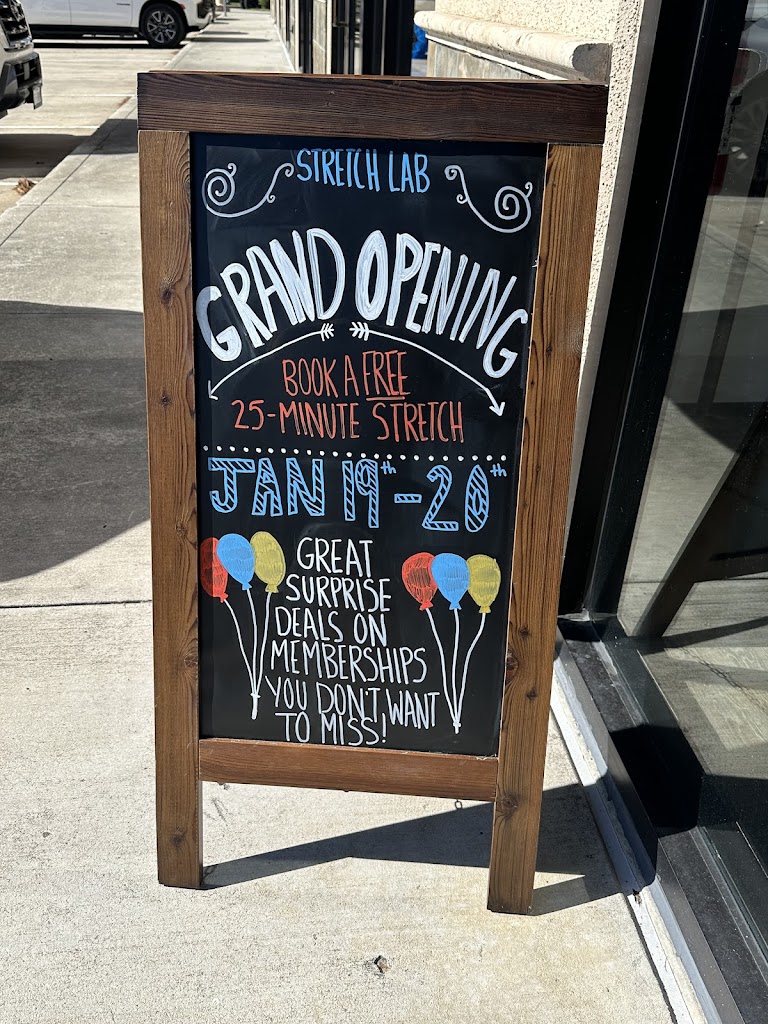 STRETCH LAB
GRAND OPENING
BOOK A FREE
25-MINUTE STRETCH
JAN 19th - 20th
GREAT
SURPRISE
DEALS ON
MEMBERSHIPS
YOU DON'T WANT
TO MISS!